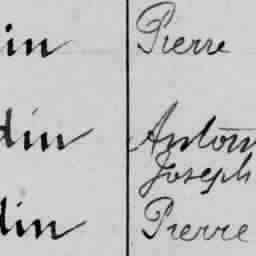 in Pierre
din Anton
Joseph
din Pierre